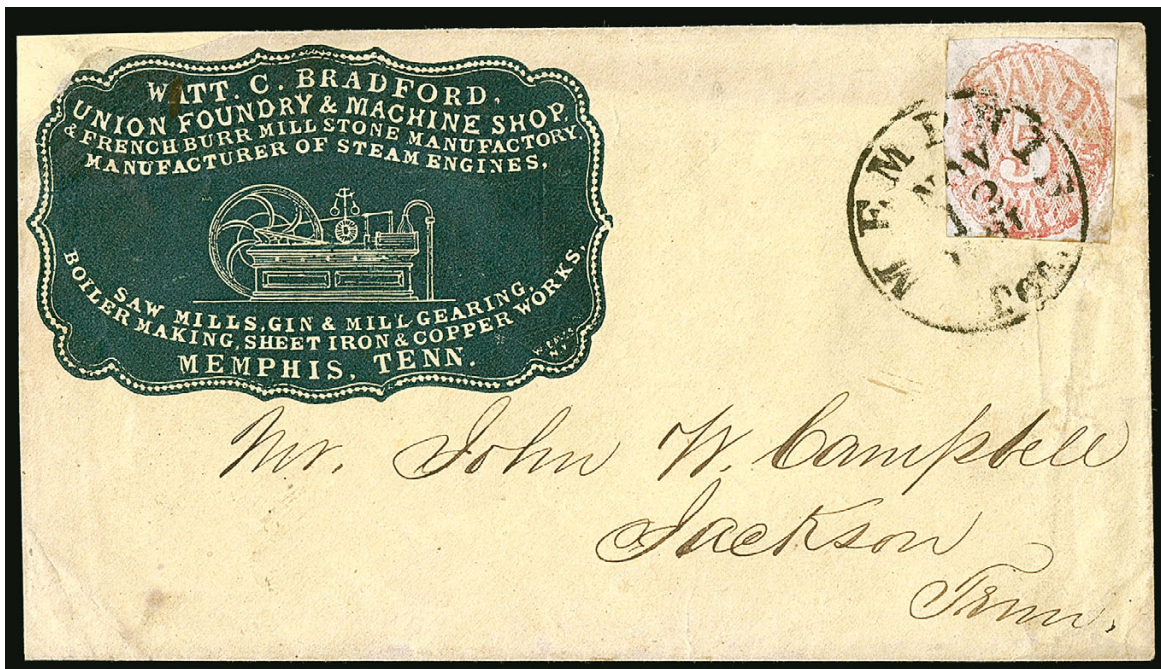 WATT. C. BRADFORD,
UNION FOUNDRY & MACHINE SHOP,
& FRENCH BURR MILL STONE MANUFACTORY
MANUFACTURER OF STEAM ENGINES,
SAW MILLS, GIN & MILL GEARING,
BOILER MAKING, SHEET IRON & COPPER WORKS,
MEMPHIS, TENN.
PAID
5
MEMPHIS
Ten.
Mr. John W. Campbell
Jackson
Tenn.